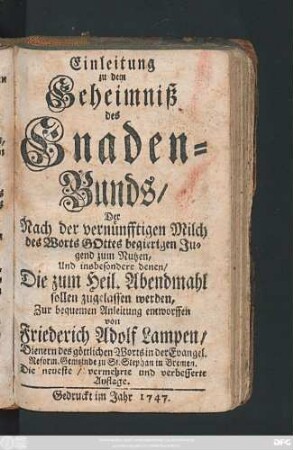 Einleitung
zu dem
Geheimniß
des
Gnaden-
Bunds/
Der
Nach der vernünfftigen Milch
des Worts GOttes begierigen Ju-
gend zum Nutzen,
Und insbesondere denen/
Die zum Heil. Abendmahl
sollen zugelassen werden,
Zur bequemen Anleitung entworffen
von
Friederich Adolf Lampen/
Dienern des göttlichen Worts in der Evangel.
Reform. Gemeinde zu St. Stephan in Bremen.
Die neueste / vermehrte und verbesserte
Auflage.
Gedruckt im Jahr 1747.